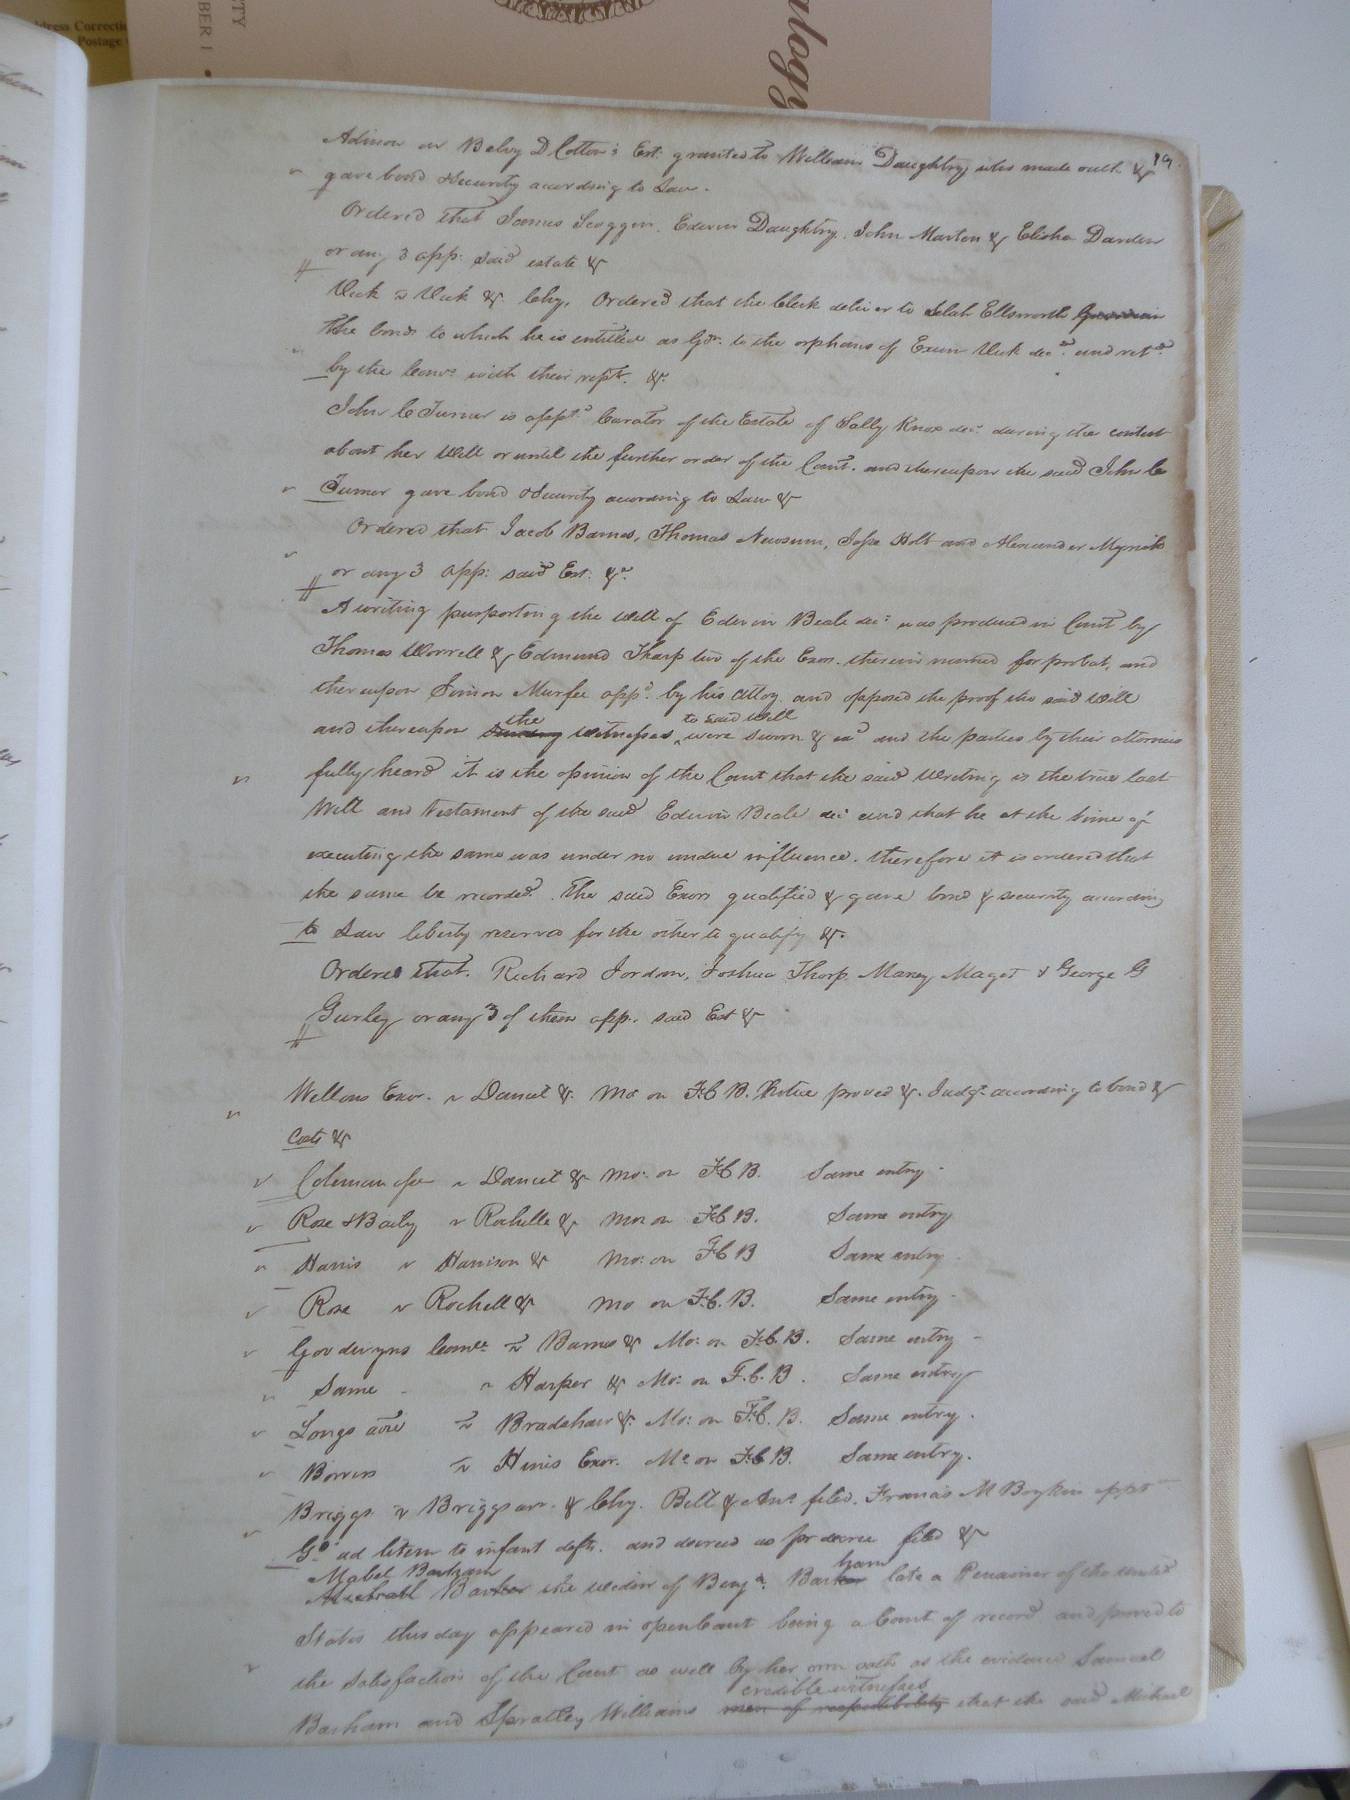 dress Correctio
Postage
TY
BER 1 •
logy
19.
Admon on Belvy D Cotton's Est: granted to William Daughtry who made oath &
gave bond & security according to Law.
Ordered that James Scoggin, Edwin Daughtry, John Marton & Elisha Darden
or any 3 app: said estate &
Vick v Vick &. Chy. Ordered that the Clerk deliver to Selah Ellsworth
the bonds to which he is entitled as Gdn. to the orphans of Exum Vick decd. and retd.
by the Comrs. with their rept. &c.
John C Turner is appd. Curator of the Estate of Sally Knox dec: during the contest
about her Will or until the further order of the Court. and thereupon the said John C
Turner gave bond & security according to Law &
Ordered that Jacob Barnes, Thomas Newsum, Jesse Holt and Alexander Myrick
or any 3 app: said Est: &c.
A writing purporting the will of Edwin Beale dec: was produced in Court by
Thomas Worrell & Edmund Tharp two of the Exors. therein named for probat, and
thereupon Simon Murfee appd. by his Attoy and opposed the proof the said Will
and thereupon the witnesses to said Will were sworn & exd and the parties by their attornies
fully heard it is the opinion of the Court that the said Writing is the true last
Will and Testament of the said Edwin Beale dec: and that he at the time of
executing the same was under no undue influence. therefore it is ordered that
the same be recorded. The said Exors qualified & gave bond & security according
to Law liberty reserved for the other to qualify &.
Ordered that. Richard Jordan, Joshua Tharp, Maney Maget & George G
Gurley or any 3 of them app. said Est &
Wellons Exor. v Daniel &. Mo on F.C B. Notice proved &. Judgt according to bond &
Costs &
Coleman v &. Mo: on F.C B. Same entry.
Rose & Baily v Rochelle & Mo: on F.C B. Same entry
Harris v Harrison & Mo: on F.C B Same entry.
Rose v Rochell & Mo on F.C. B. Same entry.
Goodwyns Comee: v Barnes & Mo: on F.C. B. Same entry
Same v Harper & Mo: on F.C. B. Same entry
Longs v Bradshaw &. Mo: on F.C. B. Same entry.
v Exor. Mo on F.C B. Same entry.
Briggs v Briggs & Chy. Bill & Ans filed. Francis M Boykin appt
Gd. ad litem to infant defts. and decreed as pr decree filed &
Mabel Barham
Barker the widow of Benja. Barham late a Pensioner of the United
States this day appeared in open Court being a Court of record and proved to
the satisfaction of the Court as well by her own oath as the evidence Samuel
Barham and Spratley Williams credible witnesses men of respectability that she said Michael